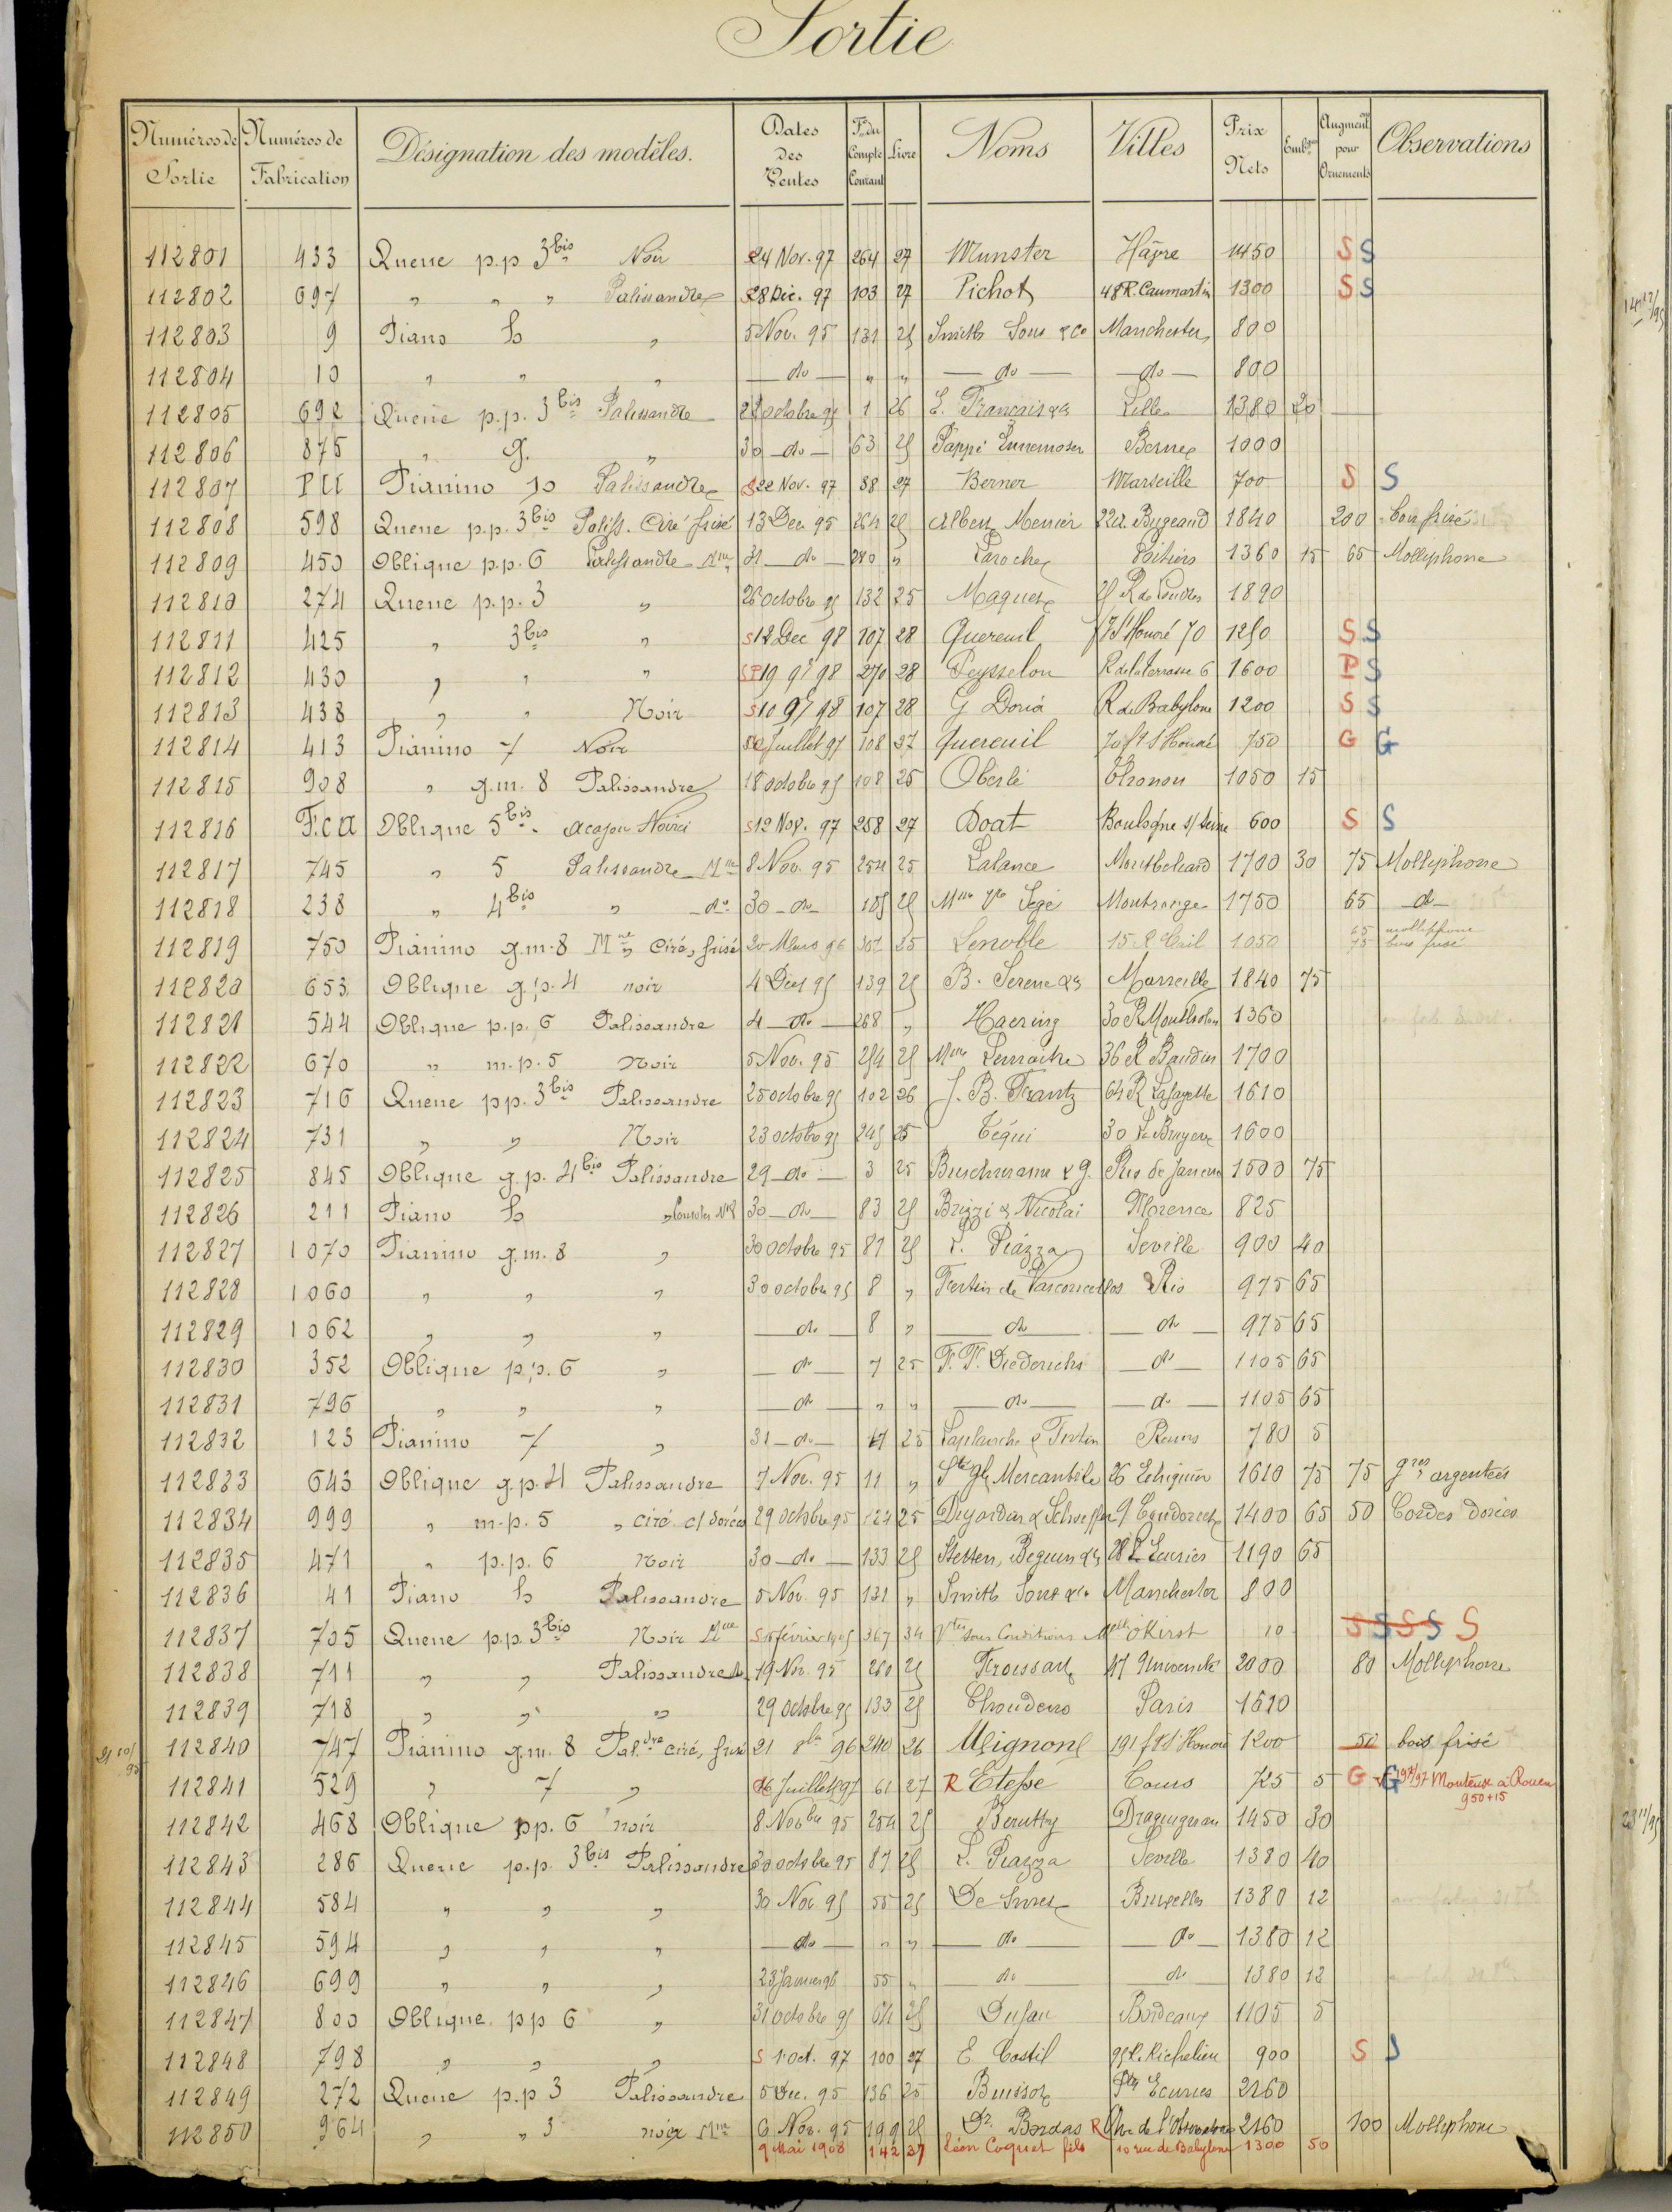 Sortie
Numéros de Sortie | Numéros de Fabrication | Désignation des modèles. | Dates des Ventes | Fo du Compte Courant | Livre | Noms | Villes | Prix Nets | Embge | Augment pour Ornements | Observations
112801 | 433 | Queue p.p 3bis Noir | 24 Nov. 97 | 264 | 27 | Munster | Hâvre | 1450 | S S
112802 | 697 | " " " Palissandre | S 28 Dic. 97 | 103 | 27 | Pichot | 48 R. Caumartin | 1300 | S S
112803 | 9 | Piano b " | 5 Nov. 95 | 131 | 25 | Smith Sons & Co | Manchester | 800
112804 | 10 | " " " | do | " | " | do | do | 800
112805 | 692 | Queue p.p. 3bis Palissandre | octobre 95 | 1 | 26 | Français | Lille | 1380 | 20
112806 | 875 | " g. " | 30 do | 63 | 25 | Pappi | Berne | 1000
112807 | PU | Pianino 10 Palissandre | S 22 Nov. 97 | 38 | 27 | Berner | Marseille | 700 | S S
112808 | 598 | Queue p.p. 3bis Paliss. Ciré frisé | 13 Dec 95 | 264 | 25 | Albert Menier | 22 a. Bugeaud | 1840 | 200 | bois frisé
112809 | 450 | Oblique p.p. 6 Palissandre Mne | 31 do | 280 | " | Laroche | Poitiers | 1360 | 15 | 65 | Molliphone
112810 | 274 | Queue p.p. 3 " | 26 octobre 95 | 132 | 25 | Maquet | R de Londres | 1890
112811 | 425 | " 3bis " | S 12 Dec 98 | 107 | 28 | Quereuil | f St Honoré 70 | 1250 | S S
112812 | 430 | " " " | 19 98 | 270 | 28 | Peysselon | R de la terrasse 6 | 1600 | P S
112813 | 438 | " " Noir | S 10 98 | 107 | 28 | G Doria | R de Babylone | 1200 | S S
112814 | 413 | Pianino 7 Noir | Juillet 97 | 108 | 27 | Quereuil | 70 f St Honoré | 750 | G G
112815 | 908 | " g.m. 8 Palissandre | 18 octobre 95 | 108 | 25 | Oberlé | Thonon | 1050 | 15
112816 | F.c a | Oblique 5bis. acajou Noirci | S 12 Nov. 97 | 258 | 27 | Doat | Boulogne s/ Seine | 600 | S S
112817 | 745 | " 5 Palissandre Mne | 8 Nov. 95 | 254 | 25 | Lalance | Montbeliard | 1700 | 30 | 75 | Molliphone
112818 | 238 | " 4bis " do | 30 do | 105 | 25 | Mme Vve Segé | Montrouge | 1750 | 65 | d
112819 | 750 | Pianino g.m. 8 Mne " ciré, frisé | 20 Mars 96 | 307 | 25 | Lenoble | 15 R | 1050 | 65 molliphone 75 bois frisé
112820 | 653 | Oblique g.p. 4 noir | 4 Dec 95 | 139 | 25 | B. Serene | Marseille | 1840 | 75
112821 | 544 | Oblique p.p. 6 Palissandre | 4 do | 268 | " | Haering | 30 R Montholon | 1360
112822 | 670 | " m.p. 5 noir | 5 Nov. 95 | 254 | 25 | Mme Lemaitre | 36 R Baudin | 1700
112823 | 716 | Queue p.p. 3bis Palissandre | 25 octobre 95 | 102 | 26 | J. B. Frantz | 64 R Lafayette | 1610
112824 | 731 | " " Noir | 23 octobre 95 | 245 | 25 | Téqui | 30 La Bruyere | 1600
112825 | 845 | Oblique g.p. 4bis Palissandre | 29 do | 3 | 25 | Buschmann & G. | Rio de Janeiro | 1500 | 75
112826 | 211 | Piano b " Consoles | 30 do | 83 | 25 | Brizzi & Nicolai | Florence | 825
112827 | 1070 | Pianino g.m. 8 " | 30 octobre 95 | 87 | 25 | L. Piazza | Seville | 900 | 40
112828 | 1060 | " " " | 30 octobre 95 | 8 | " | Fertin de Vasconcellos | Rio | 975 | 65
112829 | 1062 | " " " | do | 8 | " | do | do | 975 | 65
112830 | 352 | Oblique p.p. 6 " | do | 7 | 25 | F. F. Diederichs | do | 1105 | 65
112831 | 796 | " " " | do | " | " | do | do | 1105 | 65
112832 | 123 | Pianino 7 " | 31 do | 47 | 25 | & Fertin | Reims | 780 | 5
112833 | 643 | Oblique g.p. 4 Palissandre | 7 Nov. 95 | 11 | " | Sté gle Mercantile | 26 Echiquier | 1610 | 75 | 75 | argentées
112834 | 999 | " m.p. 5 " ciré c/ dorées | 29 octobre 95 | 124 | 25 | Dujardin & | 9 Condorcet | 1400 | 65 | 50 | Cordes dorées
112835 | 471 | " p.p. 6 noir | 30 do | 133 | 25 | Stetten, Beguin | Ecuries | 1190 | 65
112836 | 41 | Piano b Palissandre | 5 Nov 95 | 131 | " | Smith Sons & Co | Manchester | 800
112837 | 705 | Queue p.p. 3bis Noir Mne | S février 1905 | 367 | 34 | Vtes sous Conditions | Melle O'Kirst | 10 | S S S S S
112838 | 711 | " " Palissandre do | 19 Nov. 95 | 260 | 25 | Froissart | 47 | 2000 | 80 | Molliphone
112839 | 718 | " " " | 29 octobre 95 | 133 | 25 | Choudens | Paris | 1610
112840 | 747 | Pianino g.m. 8 Pal.dre ciré, frisé | 21 8bre 96 | 240 | 26 | Mignon | 191 f St Honoré | 1200 | 50 | bois frisé
112841 | 529 | " 7 " | 16 Juillet 97 | 61 | 27 | R Etessé | Tours | 725 | 5 | G G | Monteux à Rouen
950 + 15
112842 | 468 | Oblique p.p. 6 noir | 8 Novbre 95 | 254 | 25 | Berutty | Draguignan | 1450 | 30
112843 | 286 | Queue p.p. 3bis Palissandre | 30 octobre 95 | 87 | 25 | L. Piazza | Seville | 1380 | 40
112844 | 584 | " " " | 30 Nov 95 | 55 | 25 | De Smet | Bruxelles | 1380 | 12
112845 | 594 | " " " | do | " | " | do | do | 1380 | 12
112846 | 699 | " " " | 23 Janvier 96 | 55 | " | do | do | 1380 | 12
112847 | 800 | Oblique p.p 6 " | 31 octobre 95 | 64 | 25 | Dufau | Bordeaux | 1105 | 5
112848 | 798 | " " " | S 1 oct. 97 | 100 | 27 | E Costil | R. Richelieu | 900 | S S
112849 | 272 | Queue p.p 3 Palissandre | 5 Dec. 95 | 136 | 25 | Buisson | Ptes Ecuries | 2160
112850 | 964 | " " 3 noir Mne | 6 Nov. 95 | 199 | 25 | Dr Bordas R | Ave de l'Observatoire | 2160 | 100 | Molliphone
9 Mai 1908 | 142 | 37 | Léon Coquet fils | 10 rue de Babylone | 1300 | 50